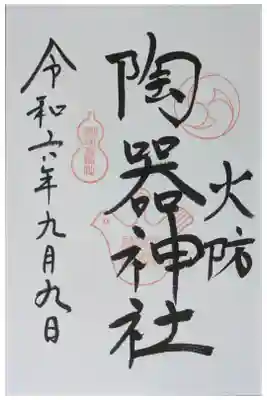 火防
陶器神社
令和六年九月九日